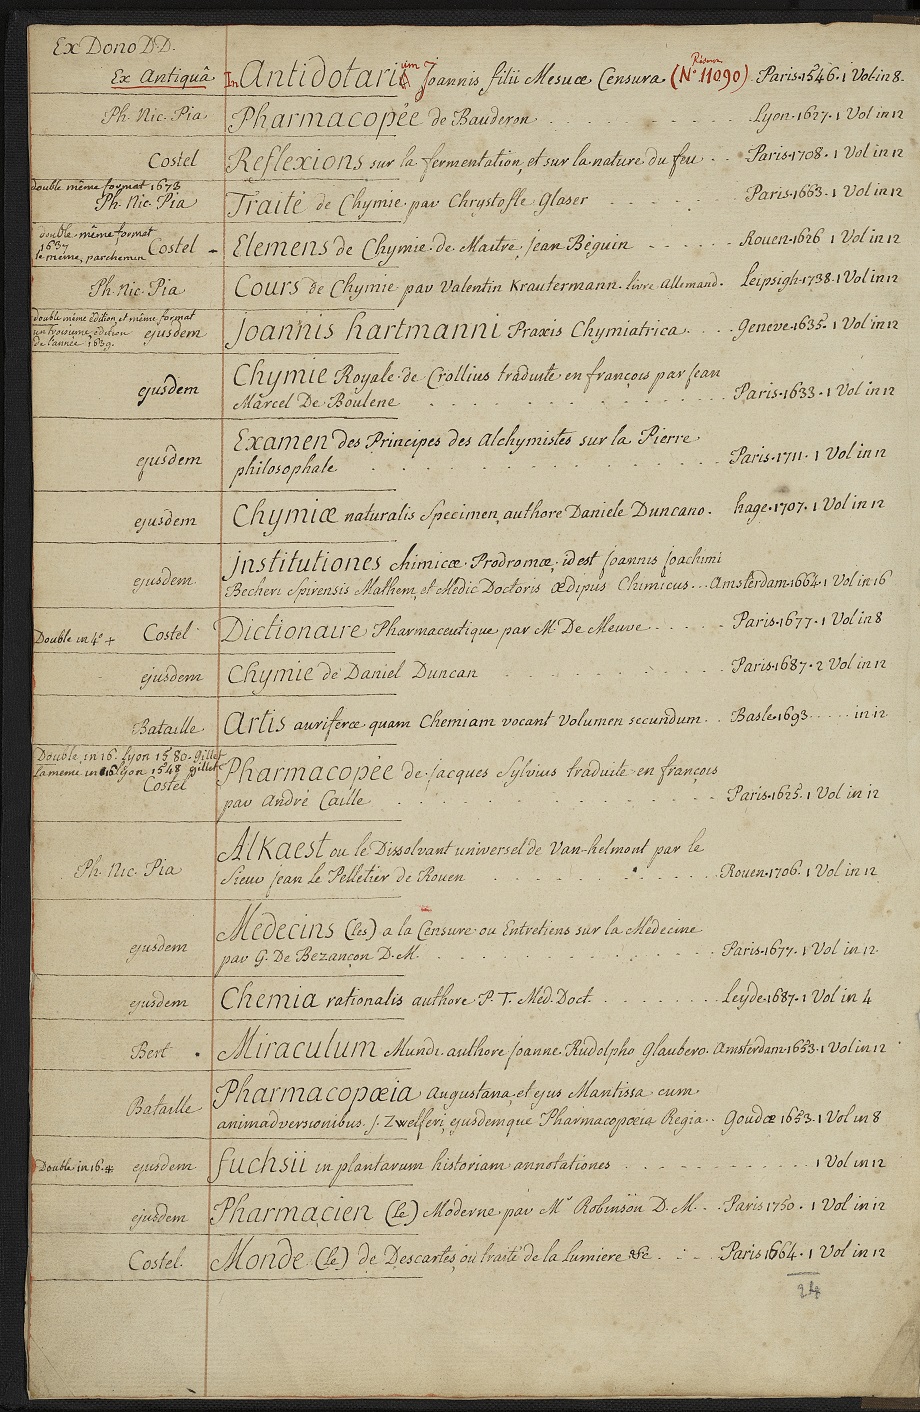 Ex Dono D.D.
Ex Antiquâ In Antidotarium Joannis filii Mesuæ Censura (N° 11090) Paris. 1546. 1 Vol in 8.
Ph. Nic. Pia Pharmacopée de Bauderon Lyon. 1627. 1 Vol in 12
Costel Reflexions sur la fermentation, et sur la nature du feu Paris. 1708. 1 Vol in 12
double même format 1673
Ph. Nic. Pia Traité de Chymie par Chrystofle Glaser Paris. 1663. 1 Vol in 12
double même format
1637
le même, parchemin Costel Elemens de Chymie de Maitre Jean Béguin Rouen. 1626 1 Vol in 12
Ph. Nic. Pia Cours de Chymie par Valentin Krautermann. livre allemand. Leipsigh. 1738. 1 Vol in 12
double même édition et même format
un troisieme édition
de l'année 1639. ejusdem Joannis hartmanni Praxis Chymiatrica Geneve. 1635. 1 Vol in 12
Chymie Royale de Crollius traduite en françois par Jean
ejusdem Marcel De Boulene Paris. 1633. 1 Vol in 12
Examen des Principes des Alchymistes sur la Pierre
ejusdem philosophale Paris. 1711. 1 Vol in 12
ejusdem Chymiæ naturalis Specimen, authore Daniele Duncano. hage. 1707. 1 Vol in 12
Institutiones chimicæ Prodromæ, id est Joannis Joachimi
ejusdem Becheri Spirensis Mathem. et Medic Doctoris Œdipus Chimicus Amsterdam. 1664. 1 Vol in 16
Double in 4° + Costel Dictionaire Pharmaceutique par Mr De Meuve Paris. 1677. 1 Vol in 8
ejusdem Chymie de Daniel Duncan Paris. 1687. 2 Vol in 12
Bataille Artis auriferæ quam Chemiam vocant volumen secundum Basle. 1693 in 12
Double in 16. Lyon 1580. Gillet
la meme in 16 Lyon 1548 gillet Pharmacopée de Jacques Sylvius traduite en françois
Costel par André Caille Paris. 1625. 1 Vol in 12
Alkaest ou le Dissolvant universel de Van-helmont par le
Ph. Nic. Pia Sieur Jean Le Pelletier de Rouen Rouen. 1706. 1 Vol in 12
Medecins (les) a la Censure ou Entretiens sur la Médecine
ejusdem par G. De Bezançon D. M. Paris. 1677. 1 Vol in 12
ejusdem Chemia rationalis authore P. T. Med. Doct. Leyde. 1687. 1 Vol in 4
Bert Miraculum Mundi authore Joanne Rudolpho Glaubero. Amsterdam. 1653. 1 Vol in 12
Pharmacopœia augustana, et ejus Mantissa cum
Bataille animadversionibus J. Zwelferi, ejusdemque Pharmacopœia Regia Goudæ 1653. 1 Vol in 8
Double in 16. ejusdem fuchsii in plantarum historiam annotationes 1 Vol in 12
ejusdem Pharmacien (Le) Moderne par Mr Robinson D. M. Paris 1750. 1 Vol in 12
Costel Monde (Le) de Descartes, ou traité de la Lumiere &c Paris 1664. 1 Vol in 12
24